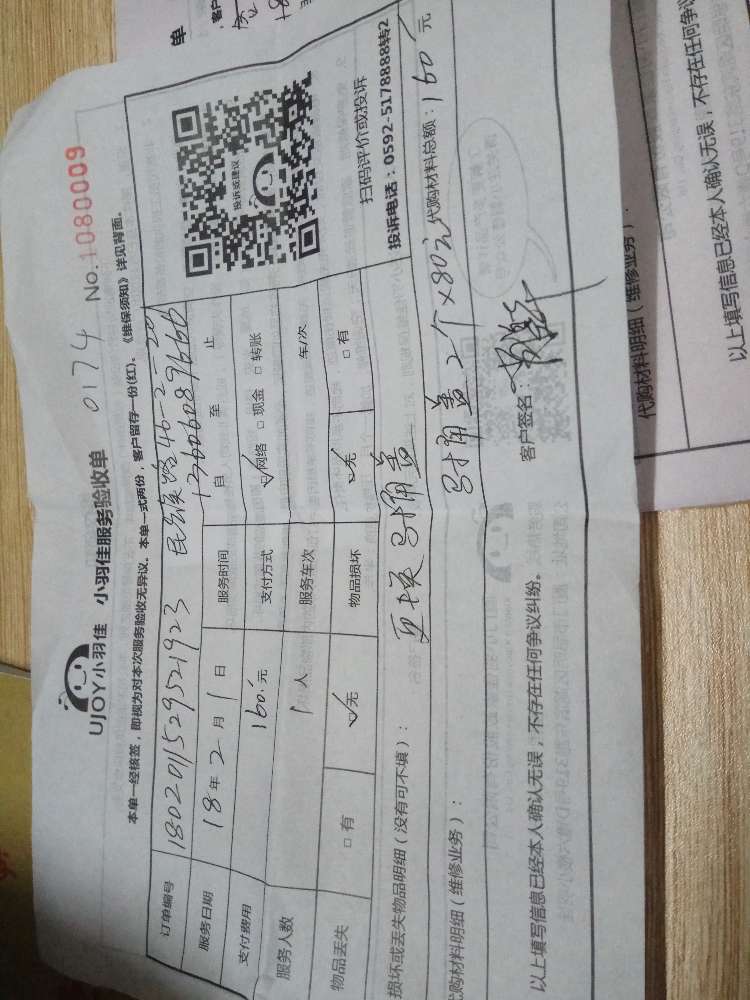 UJOY小羽佳 小羽佳服务验收单 0174 No.1080009
本单一经核签，即视为对本次服务验收无异议。本单一式两份，客户留存一份(红)。《维保须知》详见背面。
订单编号 1802011529521923 民族路46-2
服务日期 18年2月1日 服务时间 自 至 止
支付费用 160.元 支付方式 ☑网络 □现金 □转账
服务人数 1人 服务车次 车/次
物品丢失 □有 ☑无 物品损坏 ☑无 □有
投诉或建议
扫码评价或投诉
投诉电话：0592-5178888转2
损坏或丢失物品明细（没有可不填）： 更换马桶盖
代购材料明细（维修业务）： 马桶盖2个×80元 代购材料总额：160元
以上填写信息已经本人确认无误，不存在任何争议纠纷。 客户签名：
单
代购材料明细（维修业务）：
以上填写信息已经本人确认无误，不存在任何争议